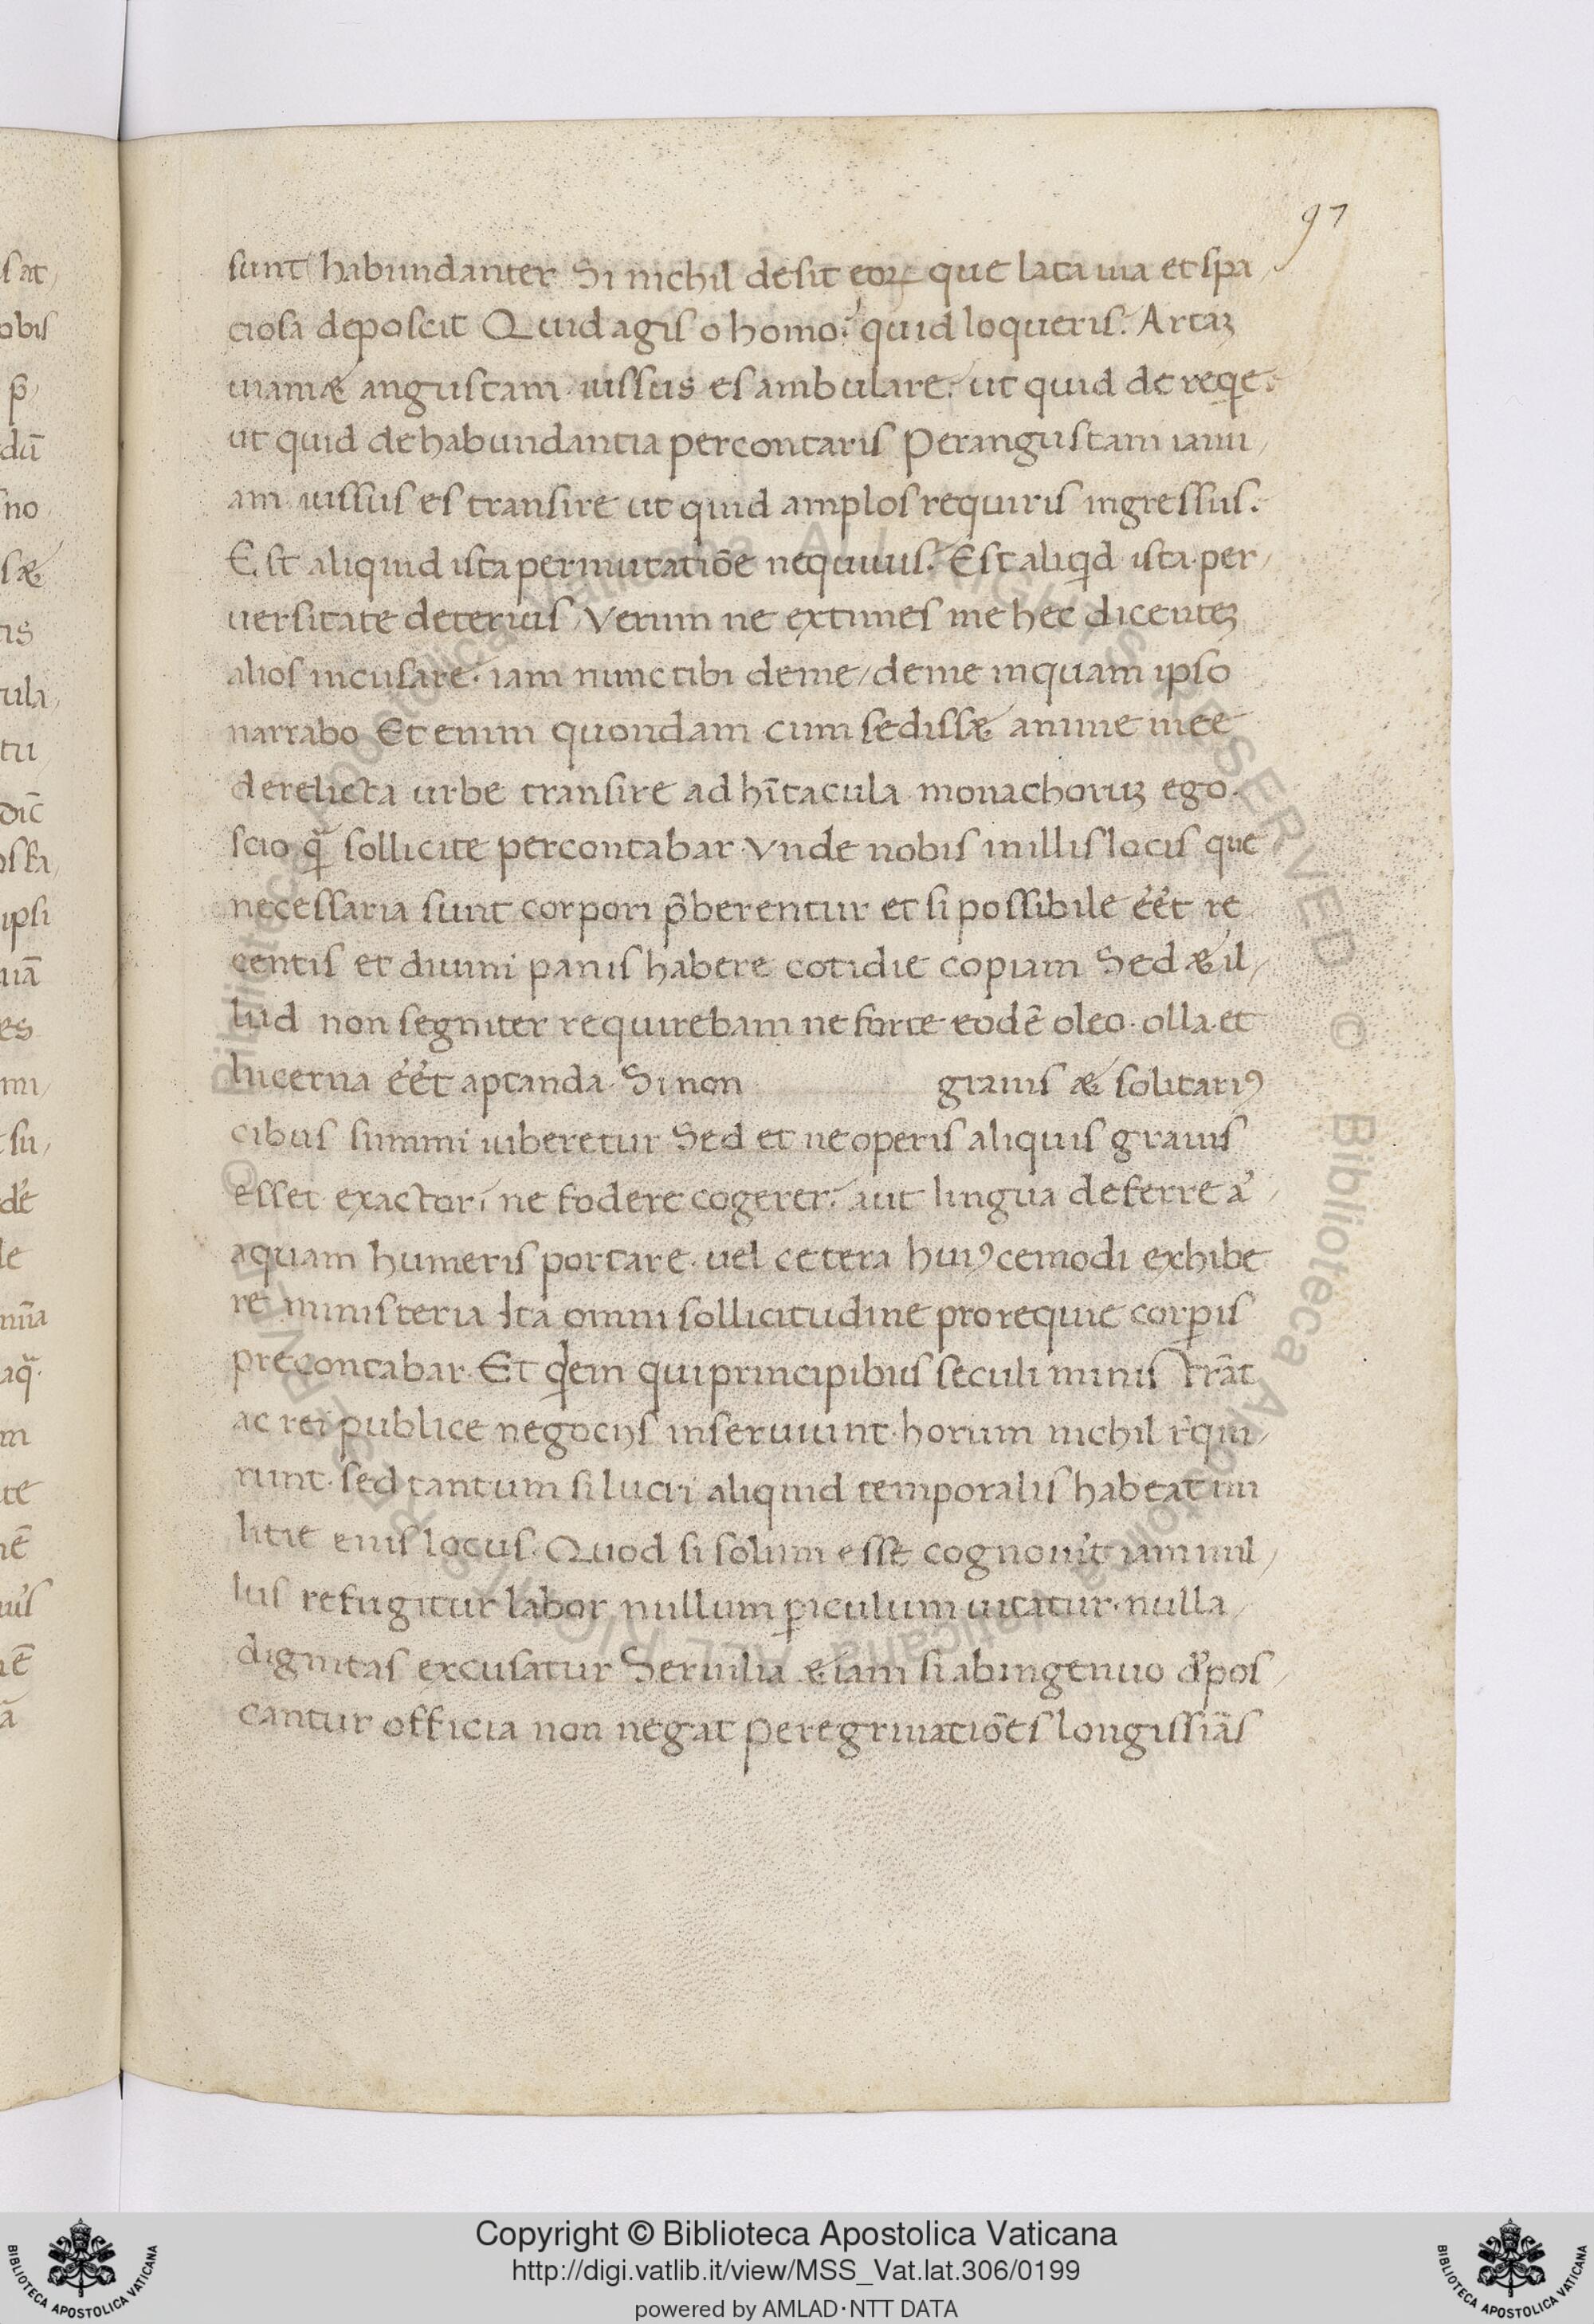 97
sunt habundanter Si nichil desit eoꝝ que lata uia et spa
ciosa deposcit Quid agis o homo? quid loqueris. Artaꝫ
uiam & angustam iussus es ambulare. ut quid de reqe.
ut quid de habundantia percontaris Per angustam ianu
am iussus es transire ut quid amplos requiris ingressus.
Est aliquid ista permutatiōe nequius. Est aliqid ista per
uersitate deterius Verum ne extimes me hec dicenteꝫ
alios incusare. iam nunc tibi de me / de me inquam ipso
narrabo Et enim quondam cum sediss& anime mee
derelicta urbe transire ad hītacula monachoruꝫ ego.
scio qᷓ sollicite percontabar Vnde nobis in illis locis que
necessaria sunt corpori p̄berentur et si possibile éét re
centis et diuini panis habere cotidie copiam Sed & il
lud non segniter requirebam ne forte eodē oleo. olla et
lucerna éét aptanda. Si non grauis & solitariꝰ
cibus summi iuberetur Sed et ne operis aliquis grauis
esset exactor. ne fodere cogerer. aut lingua deferre a
aquam humeris portare. uel cetera huiꝰcemodi exhibe
re ministeria Ita omni sollicitudine pro requie corꝑis
precontabar. Et qͥdem qui principibus seculi ministrāt
ac rei publice negocijs inseruiunt. horum nichil rͤqui
runt. sed tantum si lucri aliquid temporalis habeat mi
litie eius locus. Quod si solum esse cognouit iam nul
lus refugitur labor nullum ꝑiculum uitatur. nulla
dignitas excusatur Seruilia &iam si ab ingenuo dͤpos
cantur officia non negat peregrinatiōes longissiās
sat
obis
p̄
dū
no
s&
tis
tula
tu
dic̄
ipsi
uā
es
mi
su
le
aqᷓ
m
te
ā
Copyright © Biblioteca Apostolica Vaticana
http://digi.vatlib.it/view/MSS_Vat.lat.306/0199
powered by AMLAD·NTT DATA
BIBLIOTECA APOSTOLICA VATICANA
BIBLIOTECA APOSTOLICA VATICANA
© Biblioteca Apostolica Vaticana ALL RIGHTS RESERVED © Biblioteca Apostolica Vaticana ALL RIGHTS RESERVED